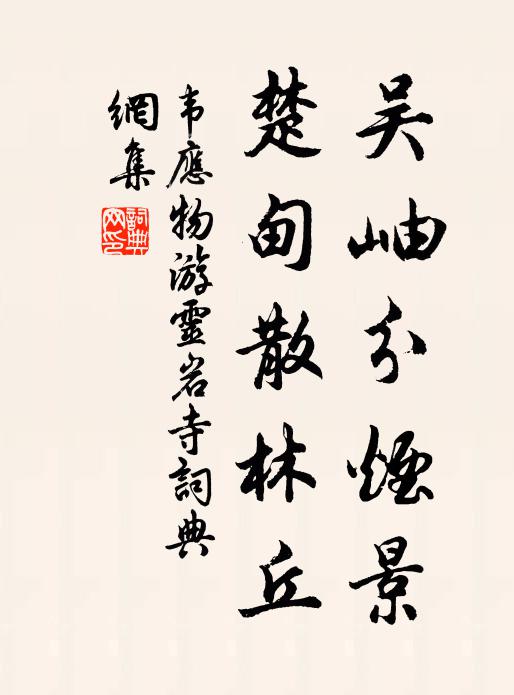 吴岫分煙景
楚甸散林丘
韦應物游靈岩寺詞典
網集
詞典網印